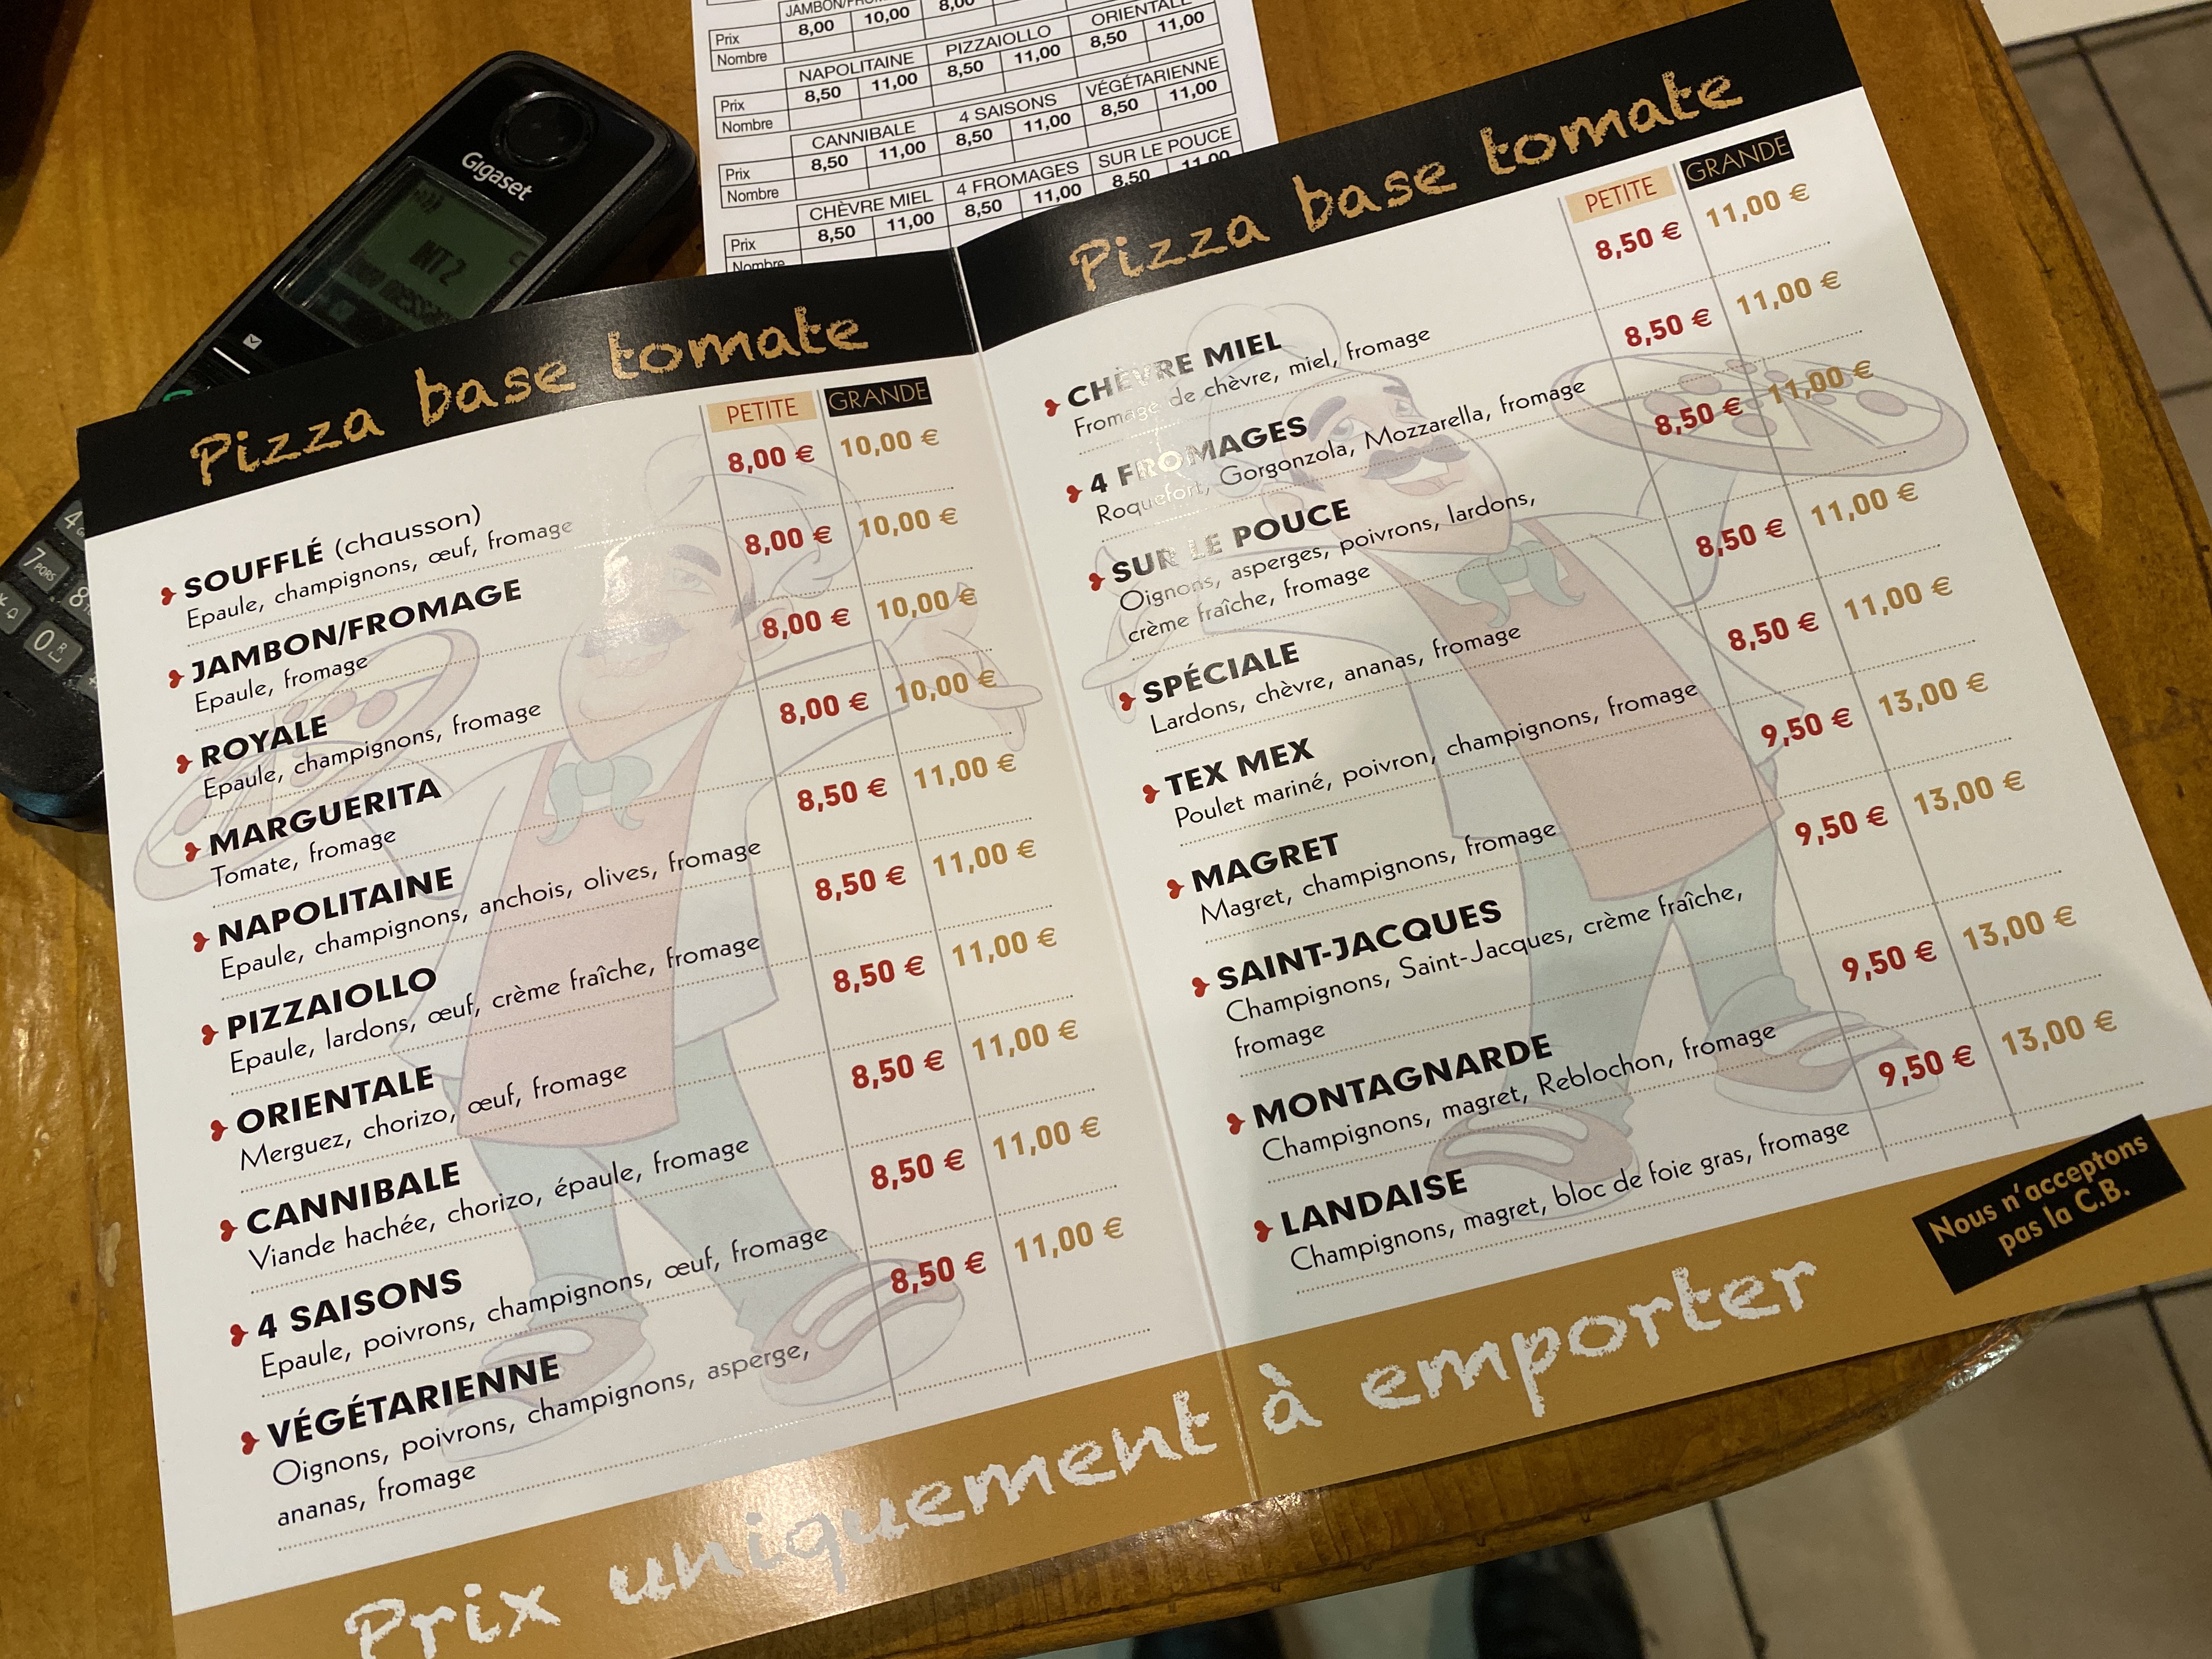 JAMBON/FROM
Prix 8,00 10,00 8,00
Nombre
NAPOLITAINE PIZZAIOLLO ORIENTALE
Prix 8,50 11,00 8,50 11,00 8,50 11,00
Nombre
CANNIBALE 4 SAISONS VÉGÉTARIENNE
Prix 8,50 11,00 8,50 11,00 8,50 11,00
Nombre
CHÈVRE MIEL 4 FROMAGES SUR LE POUCE
Prix 8,50 11,00 8,50 11,00 8,50 11,00
Nombre
Gigaset
INT 2
7 PQRS
8
0
4
Pizza base tomate
PETITE GRANDE
SOUFFLÉ (chausson) 8,00 € 10,00 €
Epaule, champignons, œuf, fromage
JAMBON/FROMAGE 8,00 € 10,00 €
Epaule, fromage
ROYALE 8,00 € 10,00 €
Epaule, champignons, fromage
MARGUERITA 8,00 € 10,00 €
Tomate, fromage
NAPOLITAINE 8,50 € 11,00 €
Epaule, champignons, anchois, olives, fromage
PIZZAIOLLO 8,50 € 11,00 €
Epaule, lardons, œuf, crème fraîche, fromage
ORIENTALE 8,50 € 11,00 €
Merguez, chorizo, œuf, fromage
CANNIBALE 8,50 € 11,00 €
Viande hachée, chorizo, épaule, fromage
4 SAISONS 8,50 € 11,00 €
Epaule, poivrons, champignons, œuf, fromage
VÉGÉTARIENNE 8,50 € 11,00 €
Oignons, poivrons, champignons, asperge,
ananas, fromage
Pizza base tomate
PETITE GRANDE
CHÈVRE MIEL 8,50 € 11,00 €
Fromage de chèvre, miel, fromage
4 FROMAGES 8,50 € 11,00 €
Roquefort, Gorgonzola, Mozzarella, fromage
SUR LE POUCE 8,50 € 11,00 €
Oignons, asperges, poivrons, lardons,
crème fraîche, fromage
SPÉCIALE 8,50 € 11,00 €
Lardons, chèvre, ananas, fromage
TEX MEX 8,50 € 11,00 €
Poulet mariné, poivron, champignons, fromage
MAGRET 9,50 € 13,00 €
Magret, champignons, fromage
SAINT-JACQUES 9,50 € 13,00 €
Champignons, Saint-Jacques, crème fraîche,
fromage
MONTAGNARDE 9,50 € 13,00 €
Champignons, magret, Reblochon, fromage
LANDAISE 9,50 € 13,00 €
Champignons, magret, bloc de foie gras, fromage
Nous n'acceptons
pas la C.B.
Prix uniquement à emporter